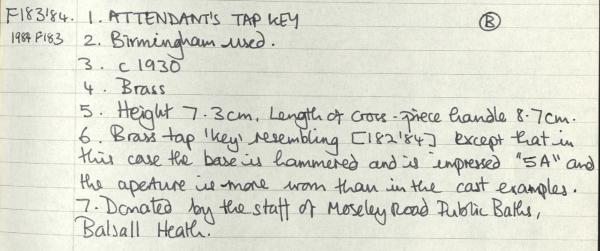 F183'84. 1. ATTENDANT'S TAP KEY B
1984 F183 2. Birmingham used.
3. c 1930
4. Brass
5. Height 7.3cm. Length of cross-piece handle 8.7cm.
6. Brass tap 'key' resembling [182'84] except that in
this case the base is hammered and is impressed "5A" and
the aperture is more worn than in the cast examples.
7. Donated by the staff of Moseley Road Public Baths,
Balsall Heath.